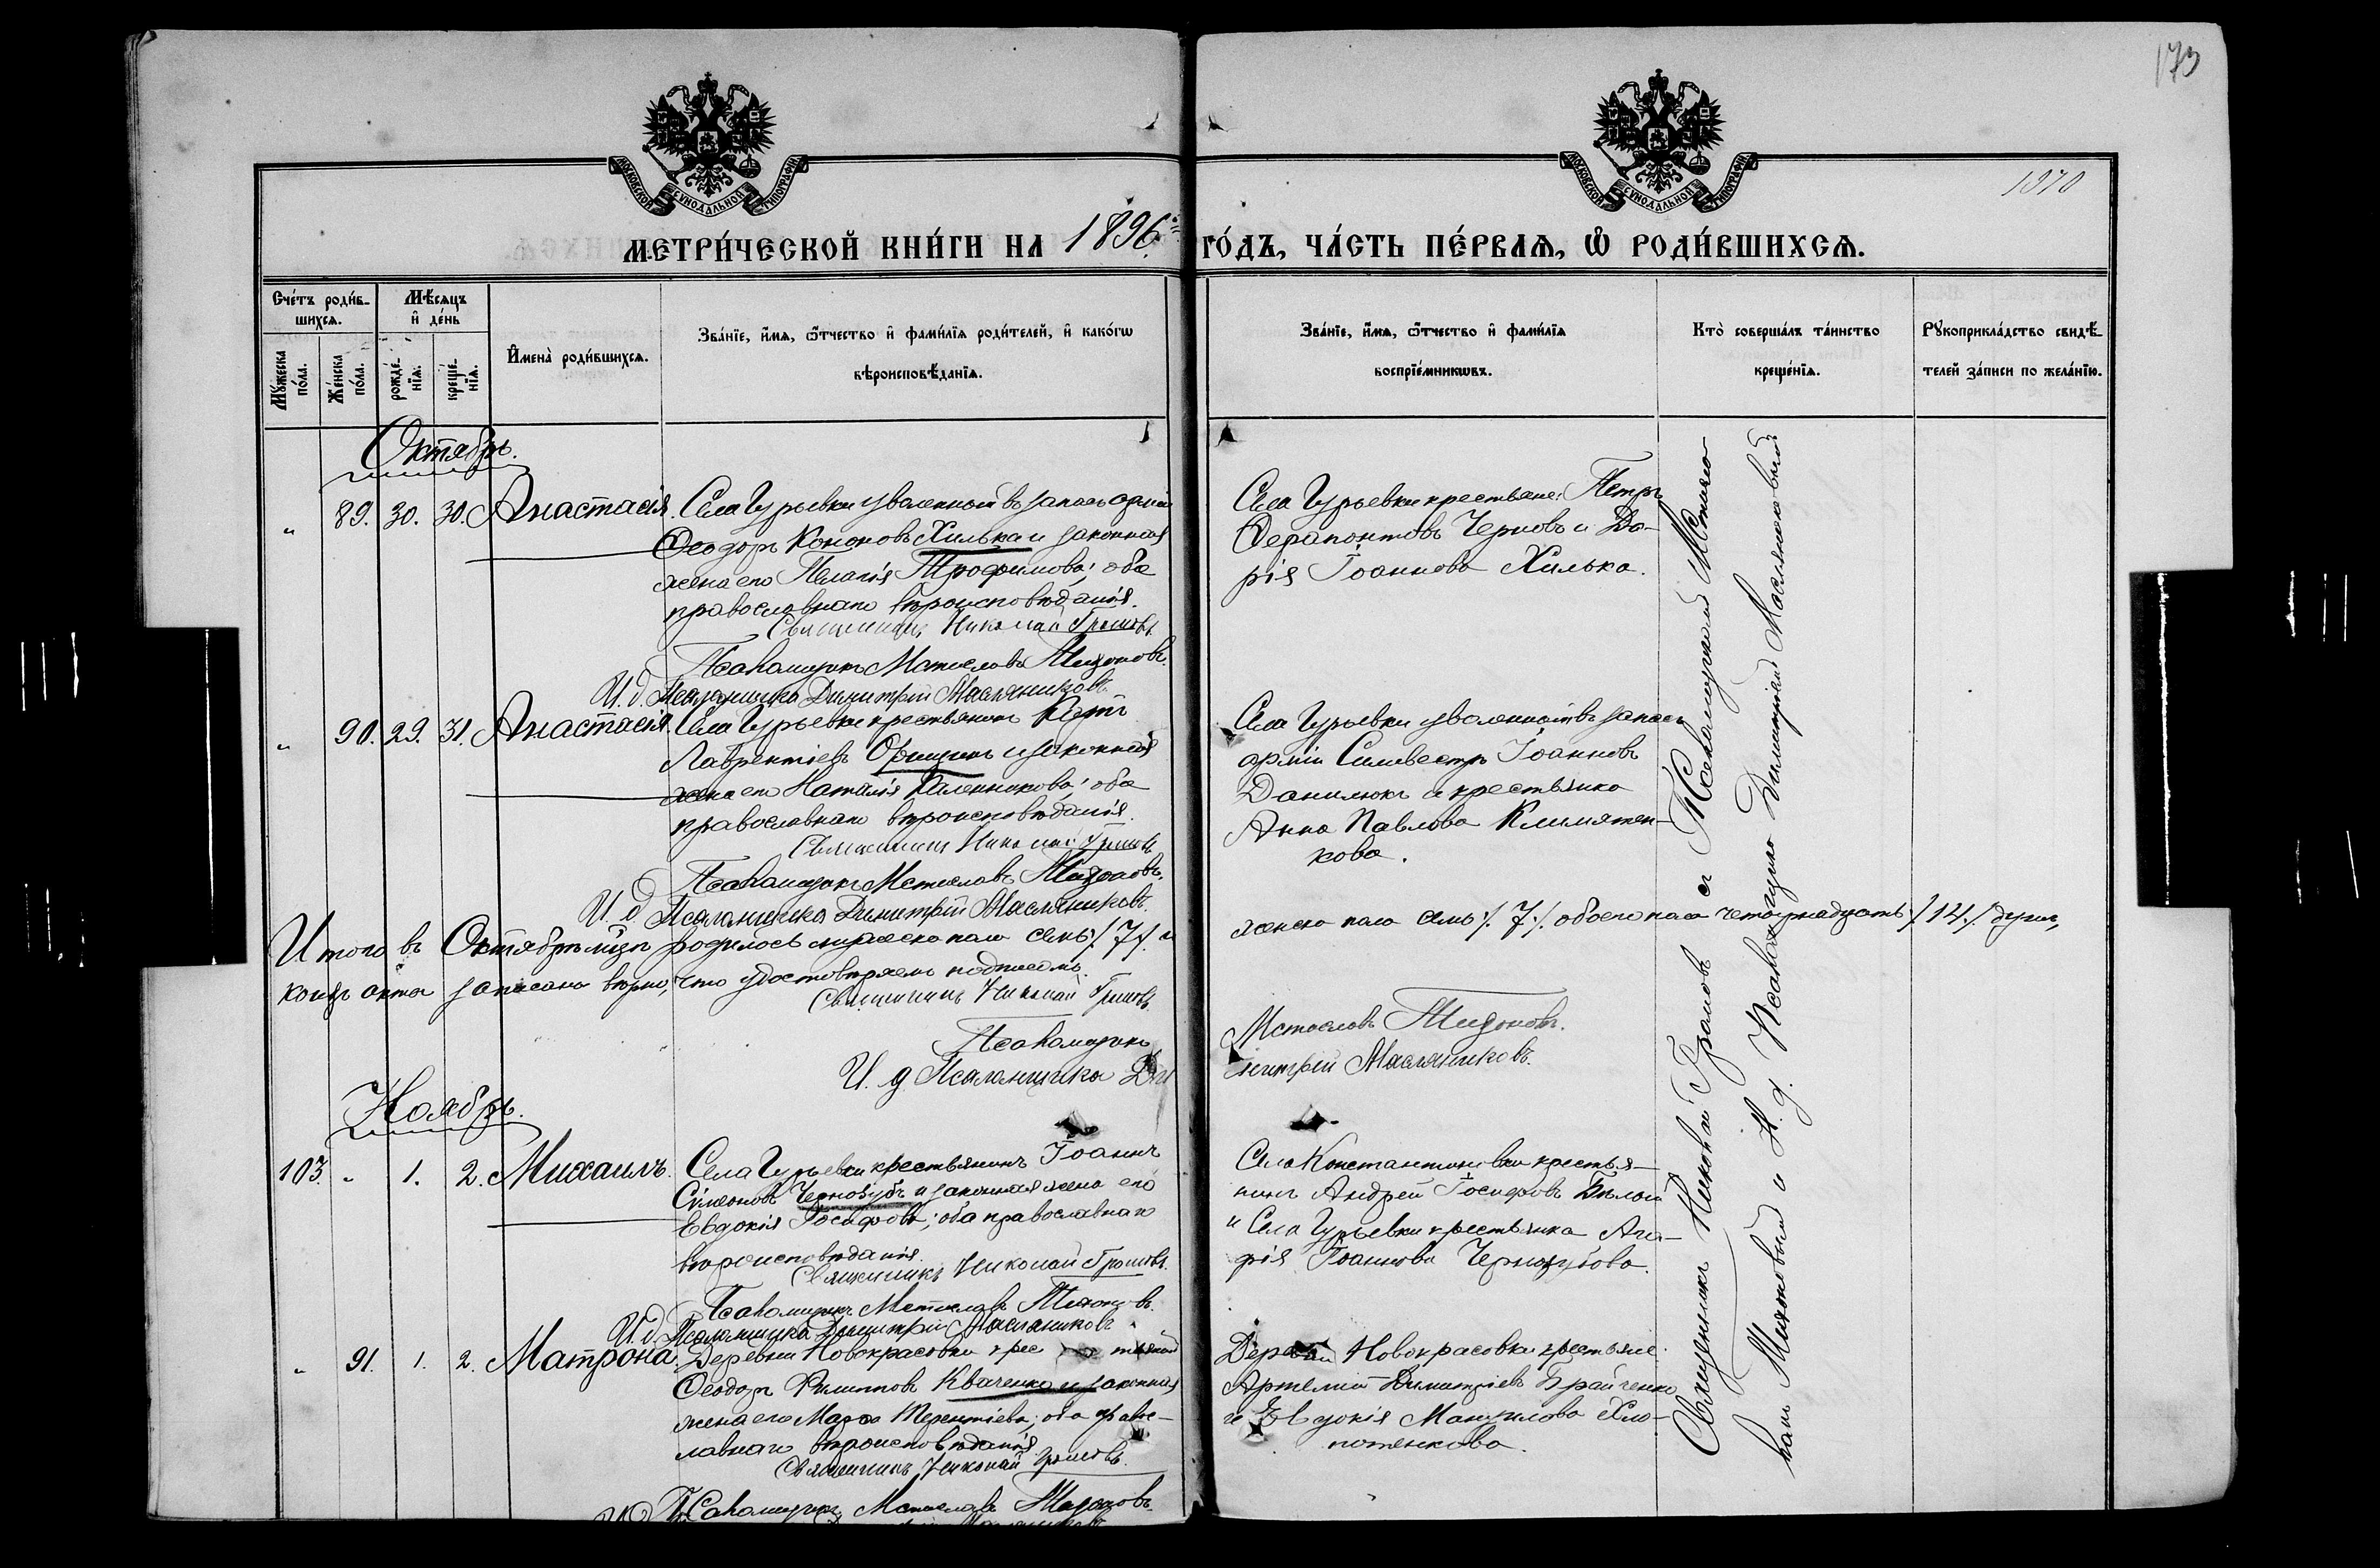 173
1370
МОСКОВСКОЙ СѴНОДАЛЬНОЙ ТИПОГРАФІИ
МОСКОВСКОЙ СѴНОДАЛЬНОЙ ТИПОГРАФІИ
МЕТРИ́ЧЕСКОЙ КНИ́ГИ НА 1896 ГО́ДЪ, ЧА́СТЬ ПЕ́РВАѦ, Ѽ РОДИ́ВШИХСѦ.
Сче́тъ роди́в-
шихсѧ.
Мѣ́сѧцъ
и҆ де́нь
Мꙋ́жеска
по́ла.
Же́нска
по́ла.
рожде́-
нїѧ.
креще́-
нїѧ.
И҆мена̀ роди́вшихсѧ.
Зва́нїе, и҆́мѧ, ѻ҆́тчество и҆ фами́лїѧ роди́телей, и҆ како́гѡ
вѣроисповѣ́данїѧ.
Зва́нїе, и҆́мѧ, ѻ҆́тчество и҆ фами́лїѧ
воспрїе́мникѡвъ.
Кто̀ соверша́лъ та́инство
креще́нїѧ.
Рꙋкоприкла́дство свидѣ́-
телей за́писи по жела́нїю.
Октябрь.
" 89. 30. 30. Анастасія. Села Гурьевки уволенный въ запасъ арміи
Ѳеодоръ Кононовъ Хилька и законная
жена его Пелагія Трофимова; оба
православнаго вѣроисповѣданія.
Священникъ Николай Громовъ
Псаломщикъ Мстиславъ Тихоновъ.
И. д. Псаломщика Димитрій Масляниковъ
Села Гурьевки крестьяне: Петръ
Ѳерапонтовъ Черновъ и Да-
рія Іоаннова Хилька.
" 90. 29. 31. Анастасія. Села Гурьевки крестьянинъ Карпъ
Лаврентіевъ и законная
жена его Наталія; оба
православнаго вѣроисповѣданія.
Священникъ Николай Громовъ
Псаломщикъ Мстиславъ Тихоновъ.
И. д. Псаломщика Димитрій Масляниковъ.
Села Гурьевки уволенный въ запасъ
арміи Силивестръ Іоанновъ
Данилюкъ и крестьянка
Анна Павлова Климятен-
кова.
Итого въ Октябрѣ м-цѣ родилось мужеска пола семь /7/. и женска пола семь /7/. обоего пола четырнадцать /14/. душъ,
коихъ акты записаны вѣрно, что удостовѣряемъ подписомъ.
Священникъ Николай Громовъ
Псаломщикъ Мстиславъ Тихоновъ.
И. д. Псаломщика Димитрій Масляниковъ.
Ноябрь.
103. " 1. 2. Михаилъ. Села Гурьевки крестьянинъ Іоаннъ
Симеоновъ Чернозубъ и законная жена его
Евдокія Іосифова; оба православнаго
вѣроисповѣданія.
Священникъ Николай Громовъ.
Псаломщикъ Мстиславъ Тихоновъ.
И. д. Псаломщика Димитрій Масляниковъ
Села Константиновки крестья-
нинъ Андрей Іосифовъ Бѣлый
и Села Гурьевки крестьянка Ага-
фія Іоаннова Чернозубова.
" 91. 1. 2. Матрона. Деревни Новокрасовки
Ѳеодоръ Филиповъ Кваченко и законная
жена его Марѳа Терентіева; оба право-
лавнаго вѣроисповѣданія.
Священникъ Николай Громовъ.
Псаломщикъ Мстиславъ Тихоновъ
Деревни Новокрасовки крестьяне:
Артемій Димитріевъ Брайченко
и Евдокія Хло-
потенкова.
Священникъ Николай Громовъ съ Псаломщикомъ Мстисла-
вомъ Тихоновымъ и И. д. Псаломщика Димитріемъ Масляниковымъ